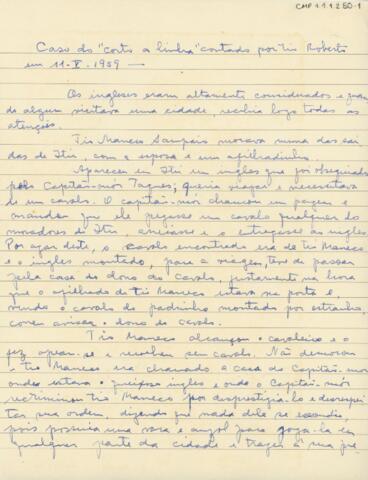 CMP 1.1.1.250-1
Caso do "corto a linha" contado por tio Roberto
em 11-V-1959 —
Os ingleses eram altamente considerados e quan-
do algum visitava uma cidade, recebia logo todas as
atenções.
Tio Maneco Sampaio morava numa das saí
das de Itu, com a esposa e um afilhadinho.
Apareceu em Itu um inglês que foi obsequiado
pelo Capitão-mór Taques; queria viajar e necessitava
de um cavalo. O capitão-mór chamou um pagem e
mandou que ele pegasse um cavalo qualquer do
moradores de Itu, e o entregasse ao inglês
Por azar deste, o cavalo encontrado era de tio Maneco
e o inglês montado, para a viagem, teve de passar
pela casa do dono do cavalo, justamente na hora
que o afilhado de tio Maneco estava na porta e
vendo o cavalo do padrinho montado por estranho,
correu avisar o dono do cavalo.
Tio Maneco alcançou o cavaleiro e o
fez apear-se e recolheu seu cavalo. Não demorou
tio Maneco era chamado a casa do Capitão-mór
onde estava o queixoso inglês e onde o Capitão-mór
recriminou tio Maneco por desprestigiá-lo e desrespei-
tar sua ordem, dizendo que nada dele se escondia,
pois possuia uma vara e anzol para
qualquer parte da cidade e trazer à sua pre-